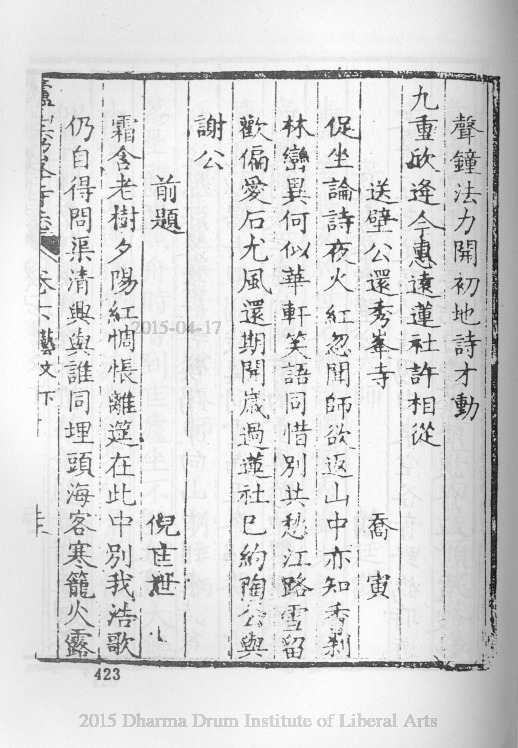 聲鐘法力開初地詩才動
九重欣逢今惠遠蓮社許相從
送壁公還秀峯寺 喬寅
促坐論詩夜火紅忽聞師欲返山中亦知香刹
林巒異何似華軒笑語同惜別共愁江路雪留
歡偏愛石尤風還期開歲過蓮社已約陶公與
謝公
前題 倪
霜含老樹夕陽紅惆悵離筵在此中別我浩歌
仍自得問渠清興與誰同埋頭海客寒籠火露
寺志 卷六 藝文下
423
2015-04-17
2015 Dharma Drum Institute of Liberal Arts